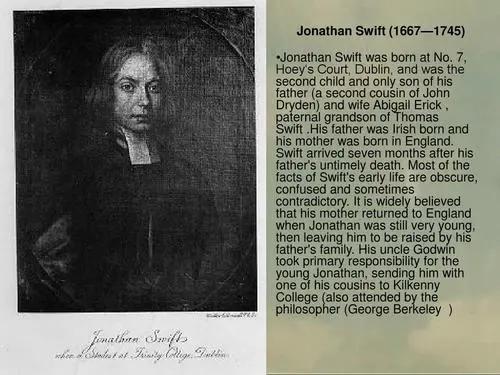 Jonathan Swift (1667—1745)
•Jonathan Swift was born at No. 7,
Hoey's Court, Dublin, and was the
second child and only son of his
father (a second cousin of John
Dryden) and wife Abigail Erick ,
paternal grandson of Thomas
Swift .His father was Irish born and
his mother was born in England.
Swift arrived seven months after his
father's untimely death. Most of the
facts of Swift's early life are obscure,
confused and sometimes
contradictory. It is widely believed
that his mother returned to England
when Jonathan was still very young,
then leaving him to be raised by his
father's family. His uncle Godwin
took primary responsibility for the
young Jonathan, sending him with
one of his cousins to Kilkenny
College (also attended by the
philosopher (George Berkeley  )
Jonathan Swift
when a Student at Trinity College, Dublin.